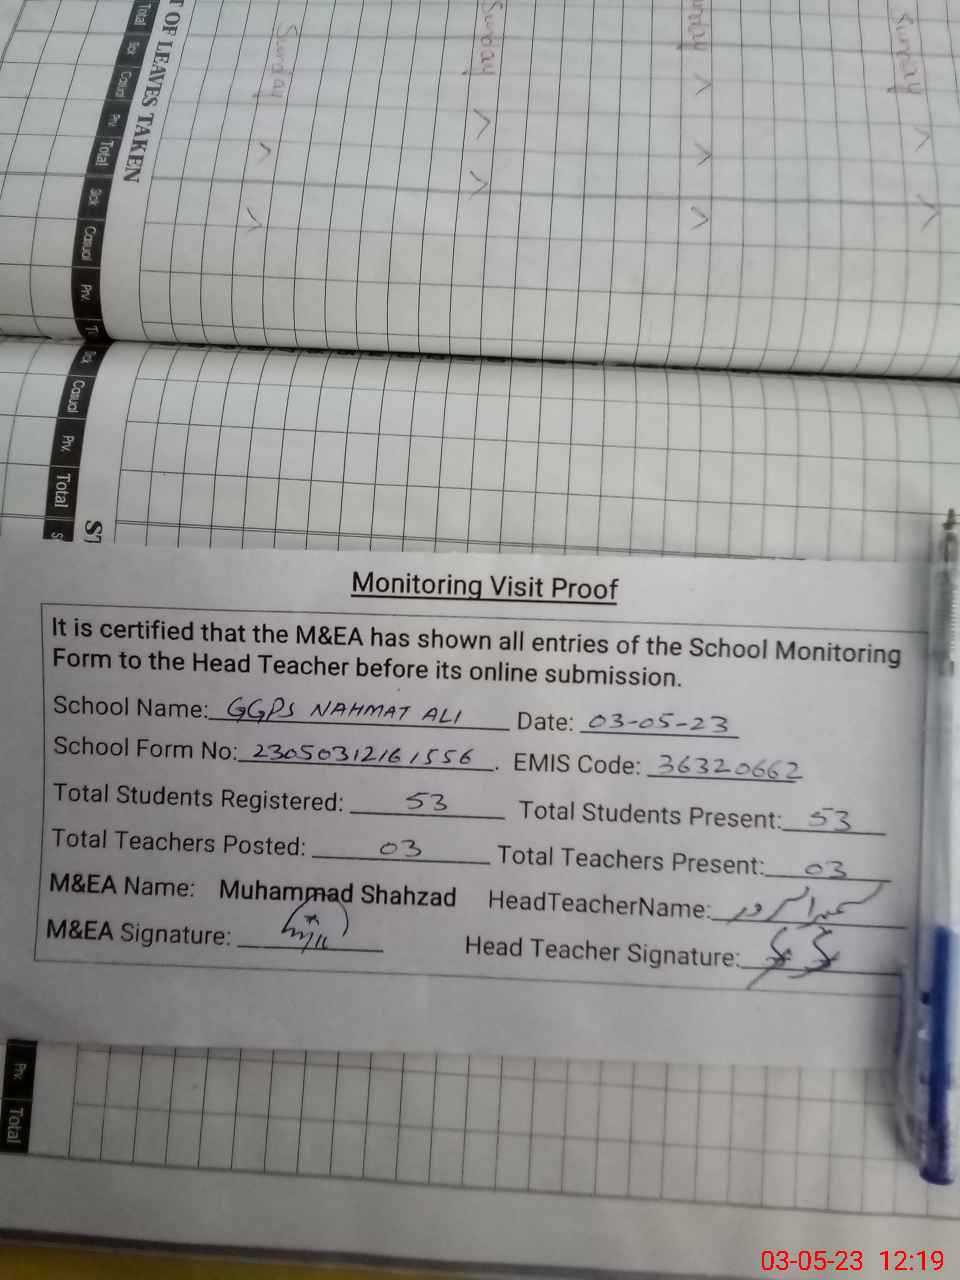 T OF LEAVES TAKEN
Total Sick Casual Prv. Total Sick Casual Prv.
Sunday Sunday Sunday
Sick Casual Prv. Total
Monitoring Visit Proof
It is certified that the M&EA has shown all entries of the School Monitoring
Form to the Head Teacher before its online submission.
School Name: GGPS NAHMAT ALI Date: 03-05-23
School Form No: 23050312161556. EMIS Code: 36320662
Total Students Registered: 53 Total Students Present: 53
Total Teachers Posted: 03 Total Teachers Present: 03
M&EA Name: Muhammad Shahzad HeadTeacherName:
M&EA Signature: Head Teacher Signature:
Prv. Total
03-05-23 12:19